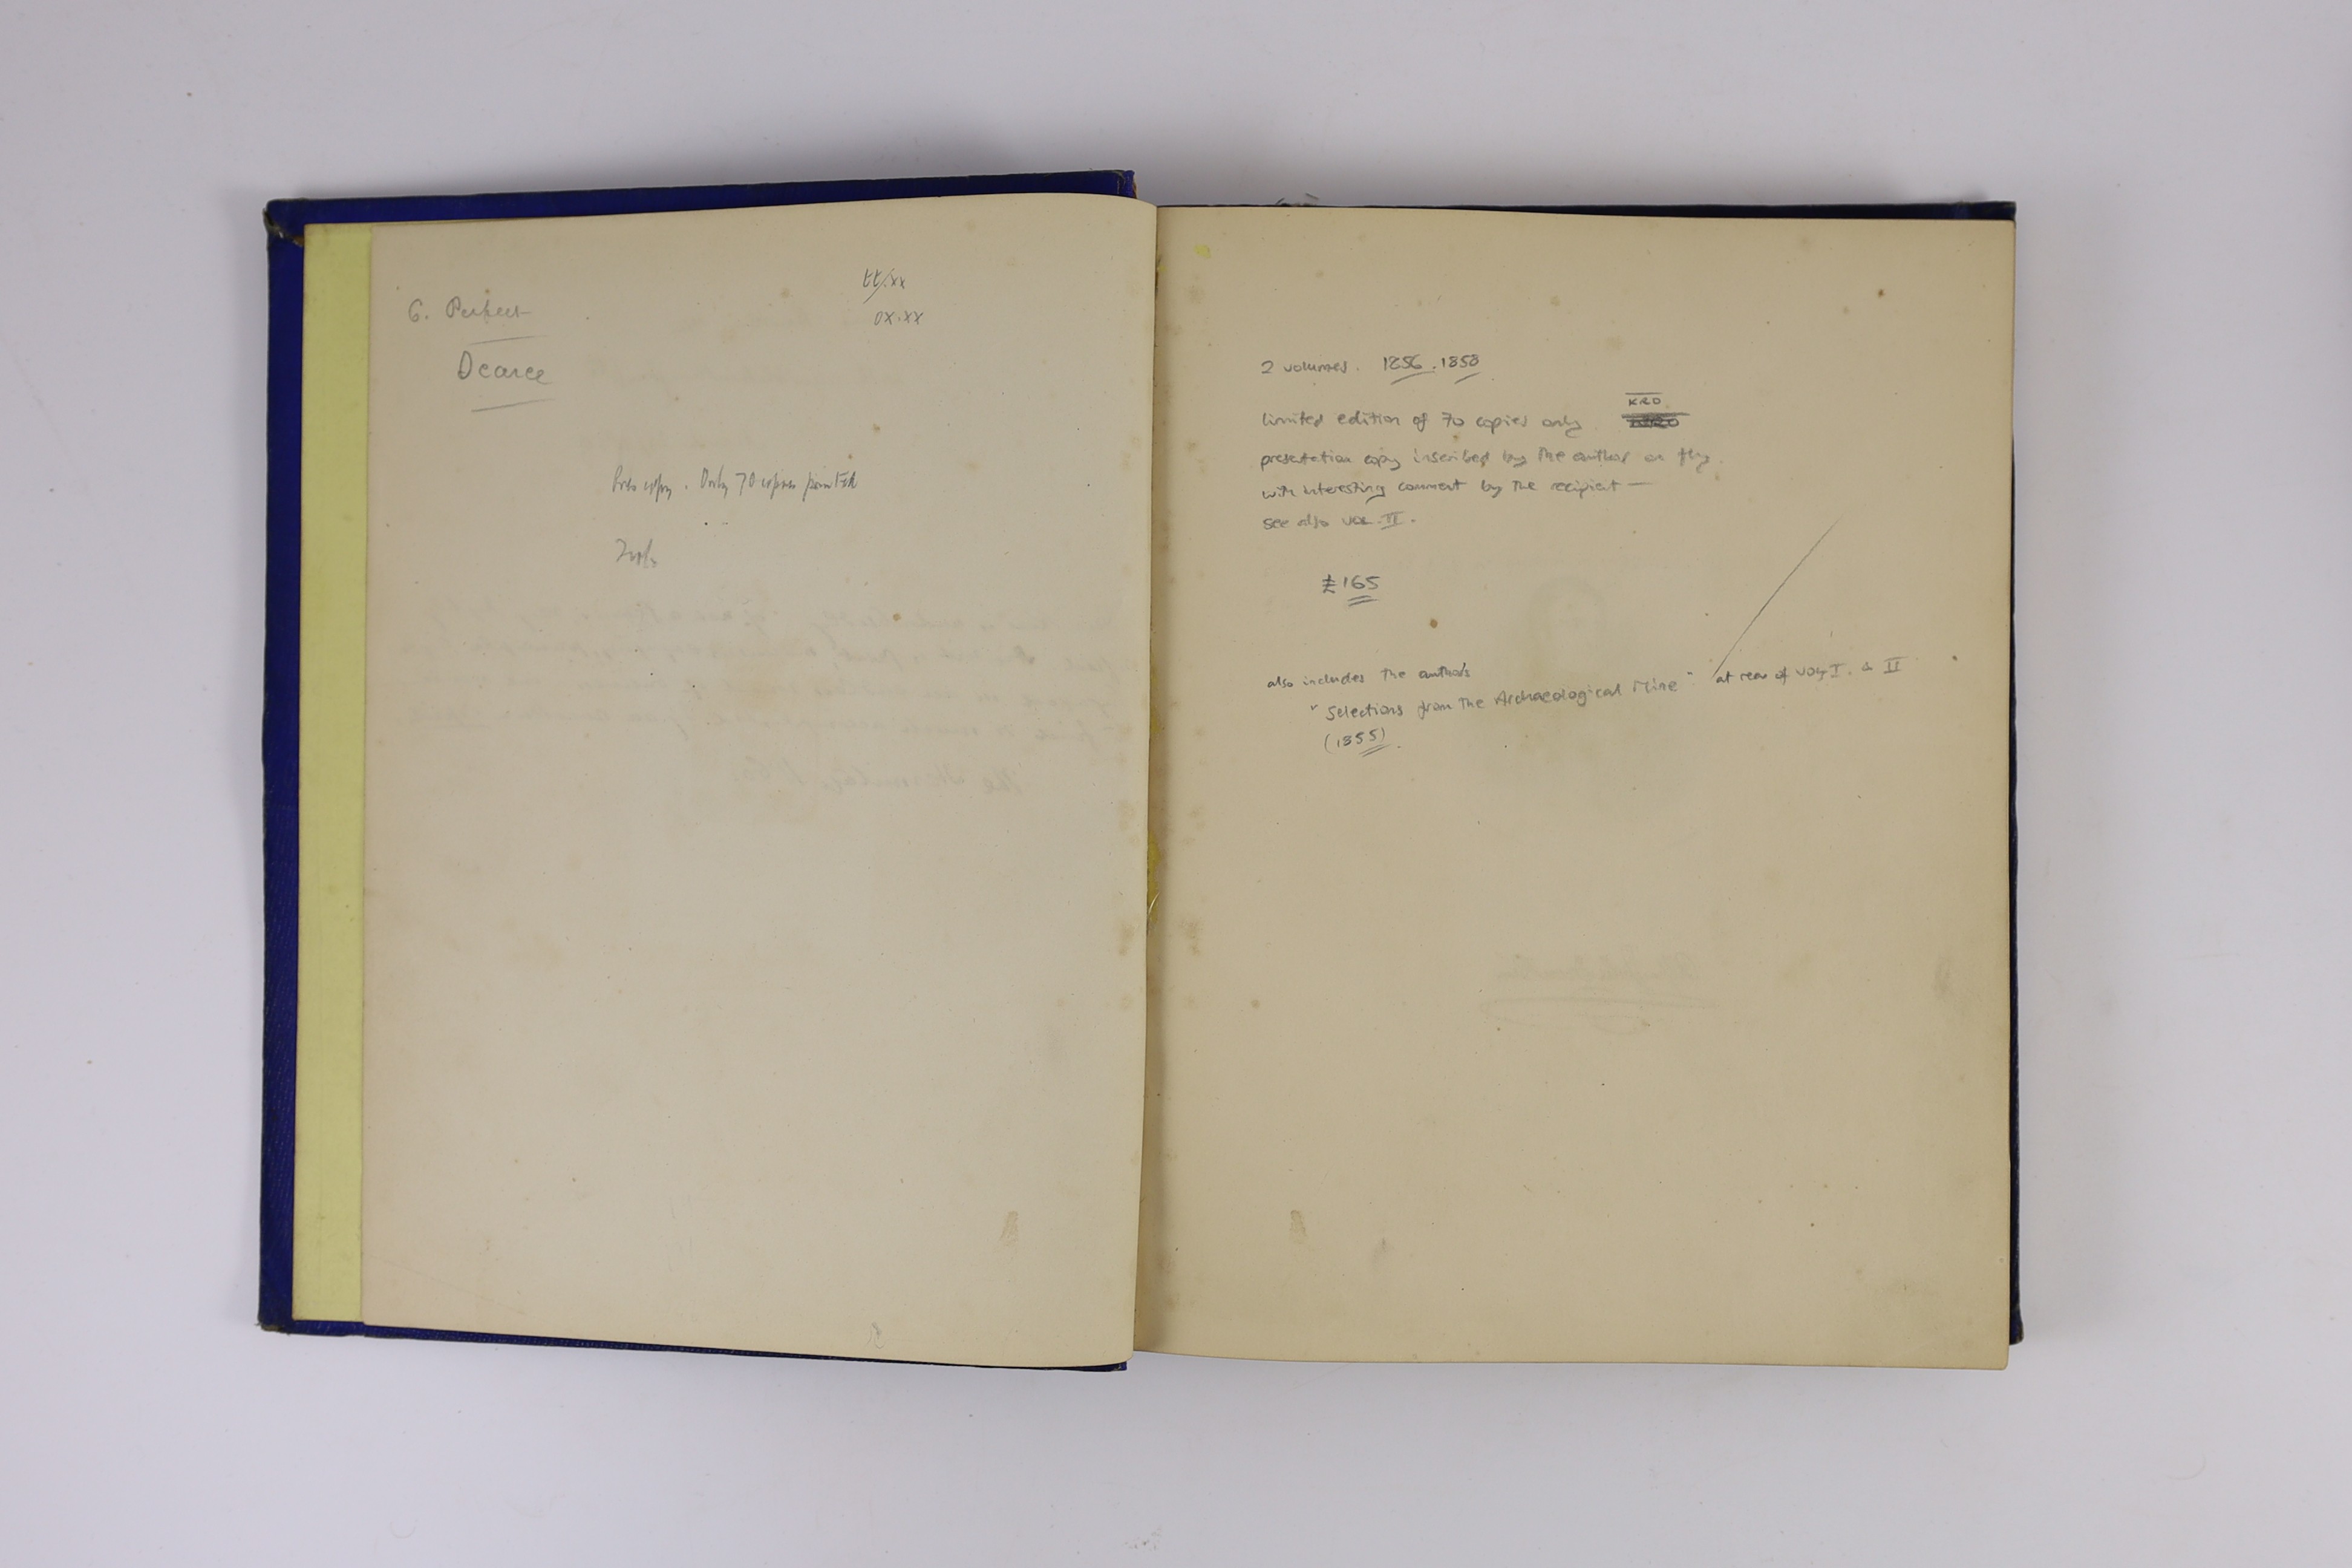 G.
Dearee
tt.xx
ox.xx
Pres copy. Only 70 copies printed
2 vols
2 volumes. 1856. 1858
KRO
limited edition of 70 copies only
presentation copy inscribed by the author on fly
with interesting comment by the recipient —
see also VOL. II.
£165
also includes the authors
"Selections from the Archaeological Mine" at rear of vols I. & II
(1855)